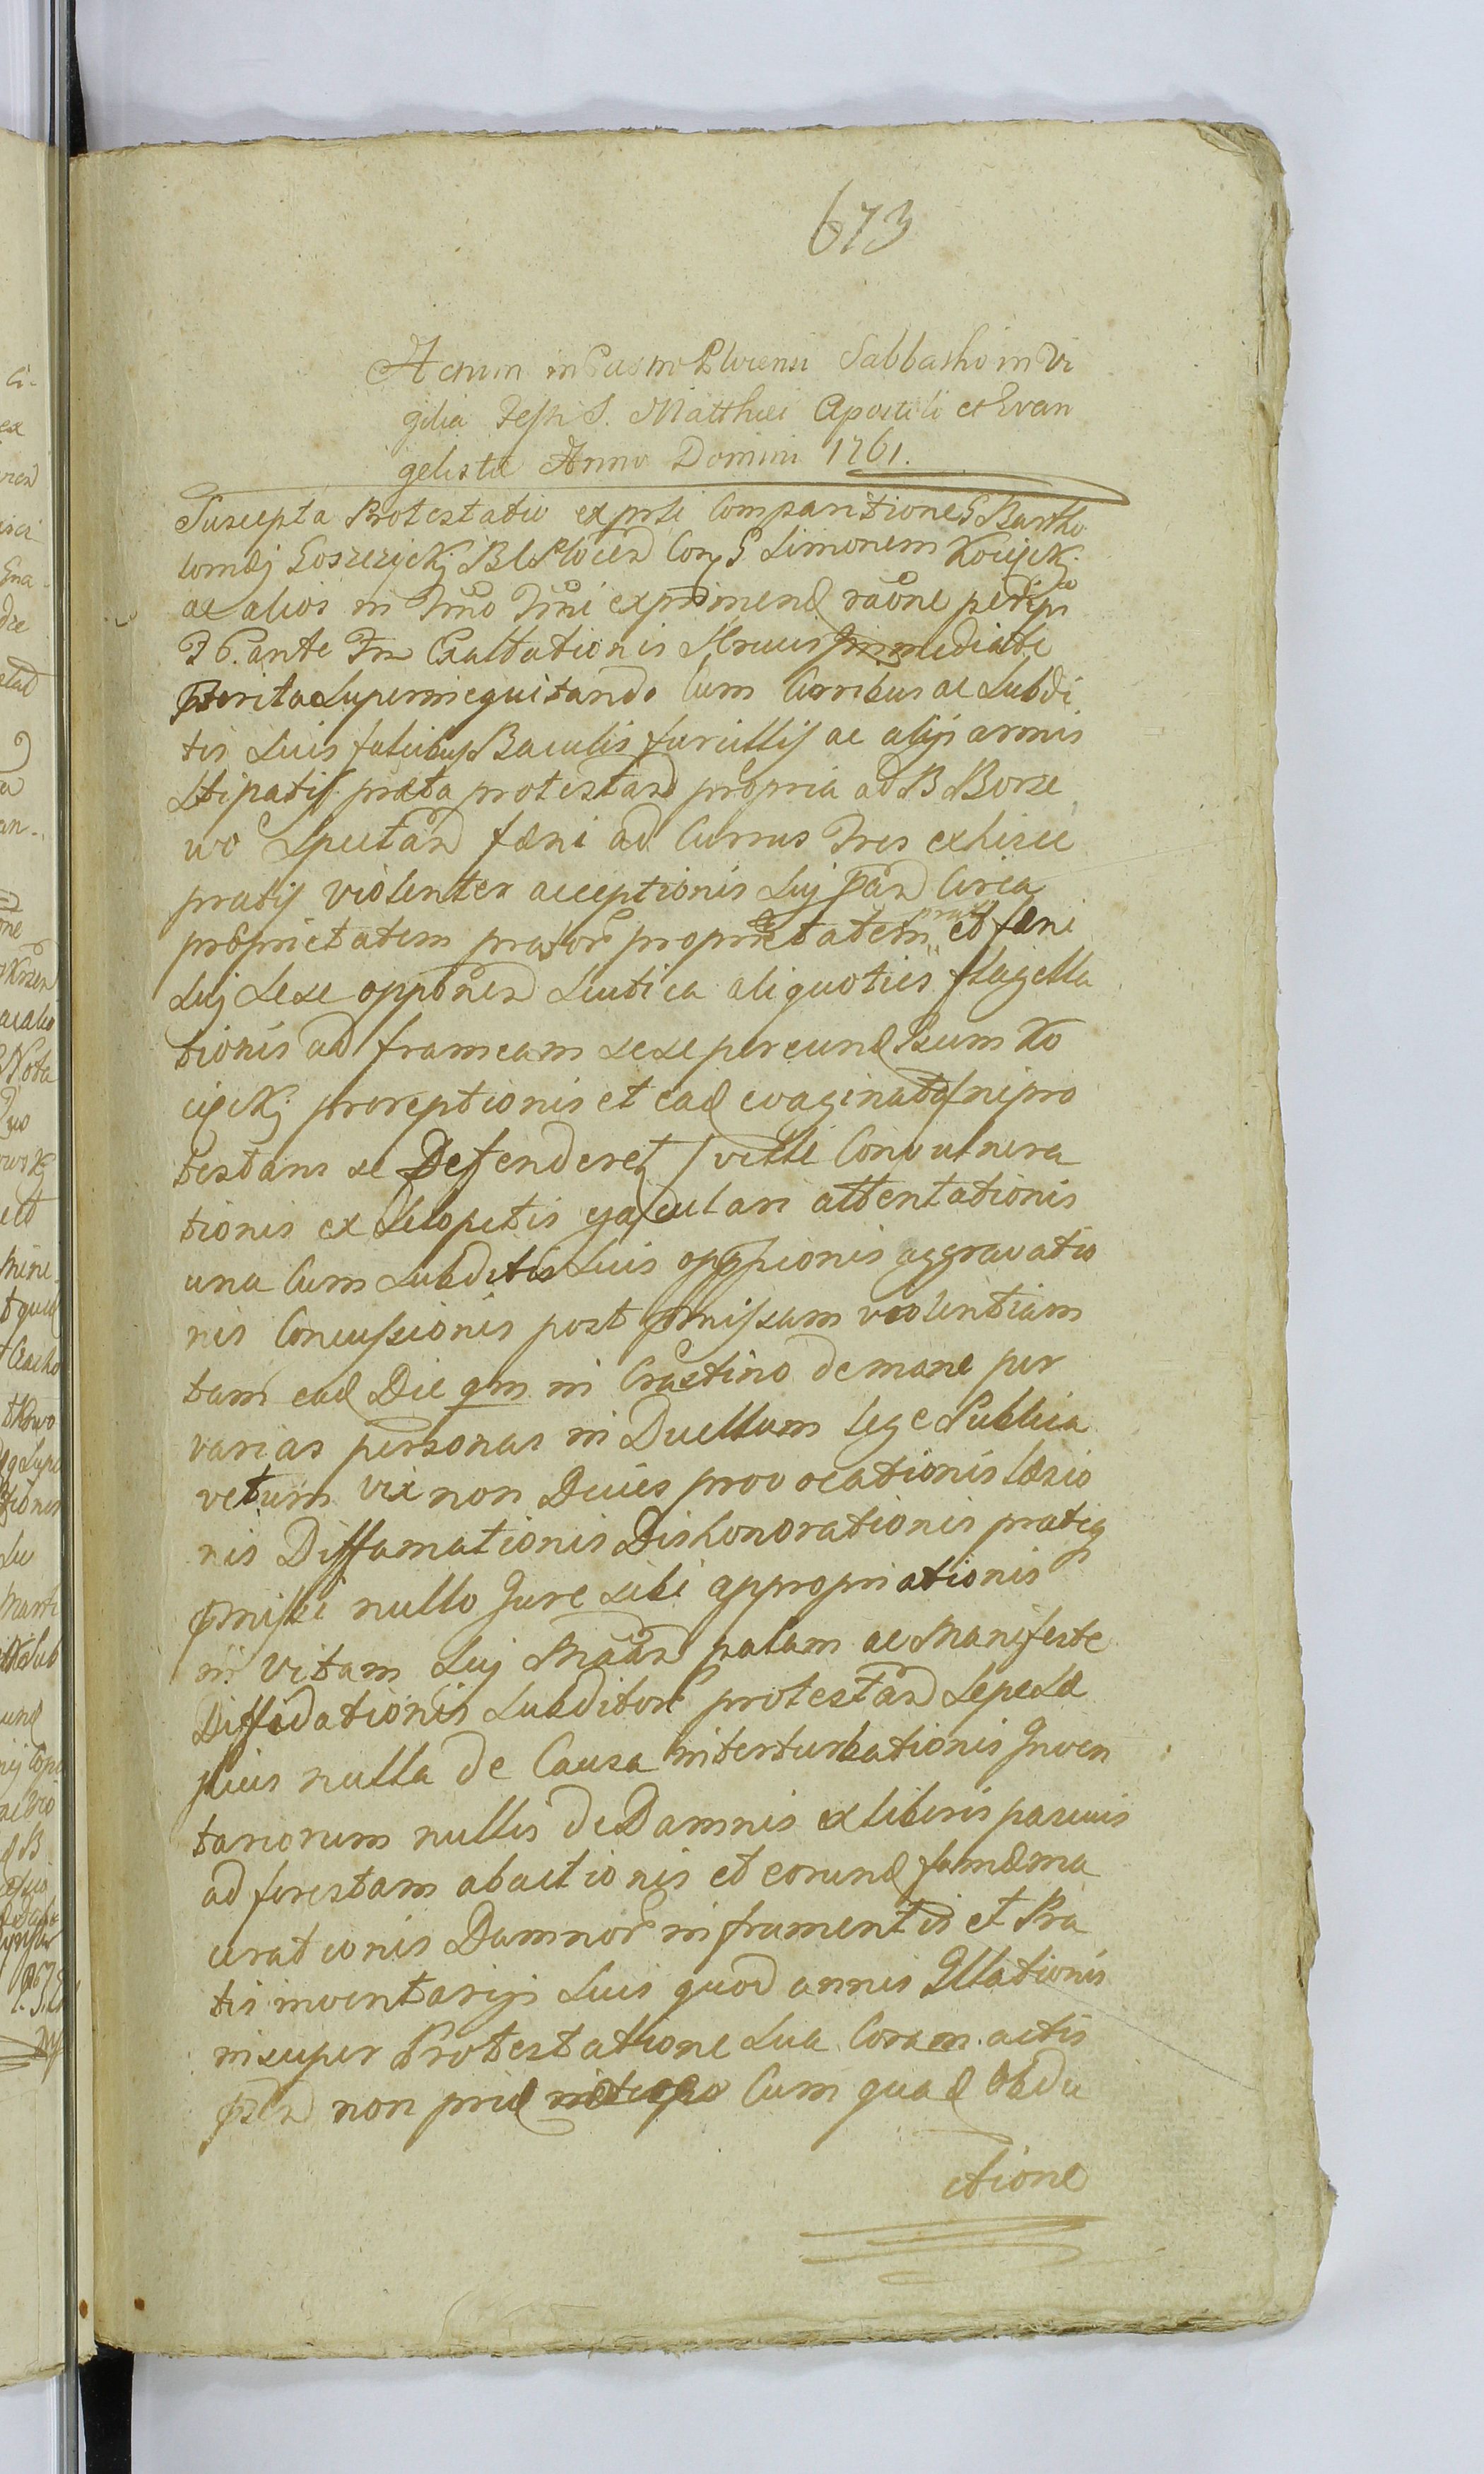 673
Actum in Castro Plocensi Sabbatho in Vi
gilia Festi S. Matthæi Apostoli et Evan
gelistæ Anno Domini 1761.
Suscepta Protestatio ex prti Comparitione G Bartho
lomæj Goszczyckj BLPlocen Con G Simonem Kocięckj
ac alios in Tmo Tmi exprimend raone
F 6. ante Fm Exaltationis Crucis immediatte
pterita Superinequitando Cum Curribus ac Subdi
tis Suis falcibus Baculis furcillis ac alijs armis
Stipatis prata protestan propria ad B Borze
wo Spectan fæni ad Currus Tres exhisce
pratis violenter acceptionis Suj pan Circa
proprietatem prator proprietatem prati et fæni
Suj Sese opponen Scutica aliquoties flagella
tionis ad frameam sese per eund Bsum Ko
cięckj proreptionis et ead evaginata ni pro
testans se Defenderet velle Convulnera
tionis ex Sclopetis ejaculari attentationis
una Cum Subditis Suis oppionis aggravatio
nis Concussionis post pmissam violentiam
tam ead Die qm in Crastino de mane per
varias personas in Duellum lege Publica
vetum vix non Quies provocationis læsio
nis Diffamationis Dishonorationis pratiq
pmissi nullo Jure sibi appropriationis
in vitam Suj palam ac Manifeste
Diffidationis Subditor protestan Sepesæ
pius nulla de Causa interturbationis Inven
tariorum nullis de Damnis ex liberis pascuis
ad forestam abactionis et eorund famæma
cerationis Damnor in frumentis et Pra
tis inventarijs Suis quod annis Illationis
insuper Protestatione Sua Coram actis
psen non prid Cum quad Obdu
ctione